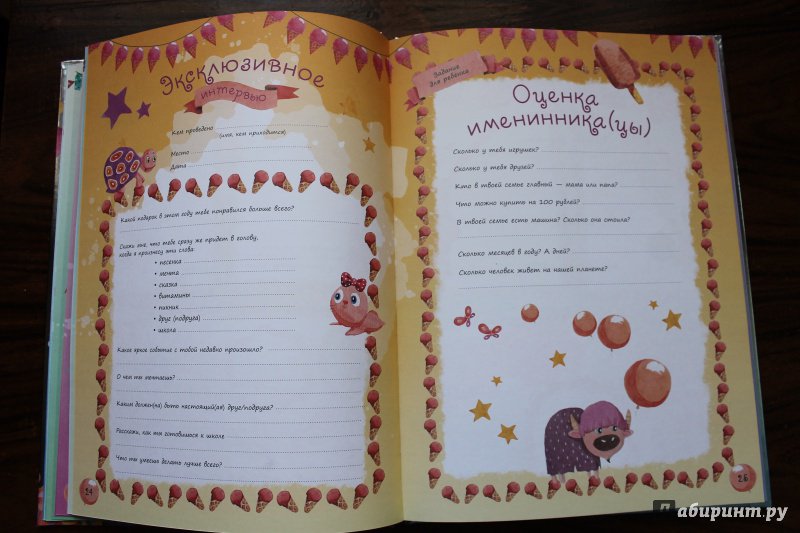 Эксклюзивное
интервью
Кем проведено
(имя, кем приходится)
Место
Дата
Какой подарок в этом году тебе понравился больше всего?
Скажи мне, что тебе сразу же придет в голову,
когда я произнесу эти слова:
• песенка
• мечта
• сказка
• витамины
• пикник
• друг (подруга)
• школа
Какое яркое событие с тобой недавно произошло?
О чем ты мечтаешь?
Каким должен(на) быть настоящий(ая) друг/подруга?
Расскажи, как ты готовишься к школе
Что ты умеешь делать лучше всего?
24
Задание
для ребенка
Оценка
именинника(цы)
Сколько у тебя игрушек?
Сколько у тебя друзей?
Кто в твоей семье главный — мама или папа?
Что можно купить на 100 рублей?
В твоей семье есть машина? Сколько она стоила?
Сколько месяцев в году? А дней?
Сколько человек живет на нашей планете?
25
Лабиринт.ру